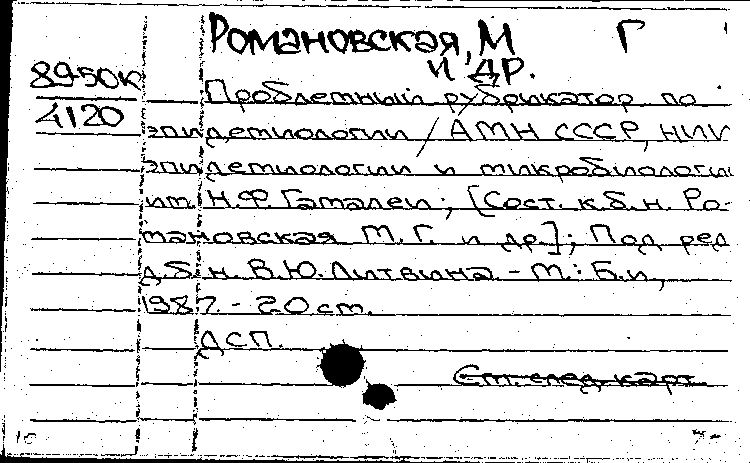 Романовская, М Г
и др.
8950к
4120
Проблемный рубрикатор по
эпидемиологии / АМН СССР, НИИ
эпидемиологии и микробиологии
им. Н.Ф. Гамалеи; [Сост. к.б.н. Ро-
мановская М.Г. и др.]; Под ред
д.б.н. В.Ю. Литвина. - М.: Б.и.,
1987. - 20 ст.
ДСП.
См. след. карт.